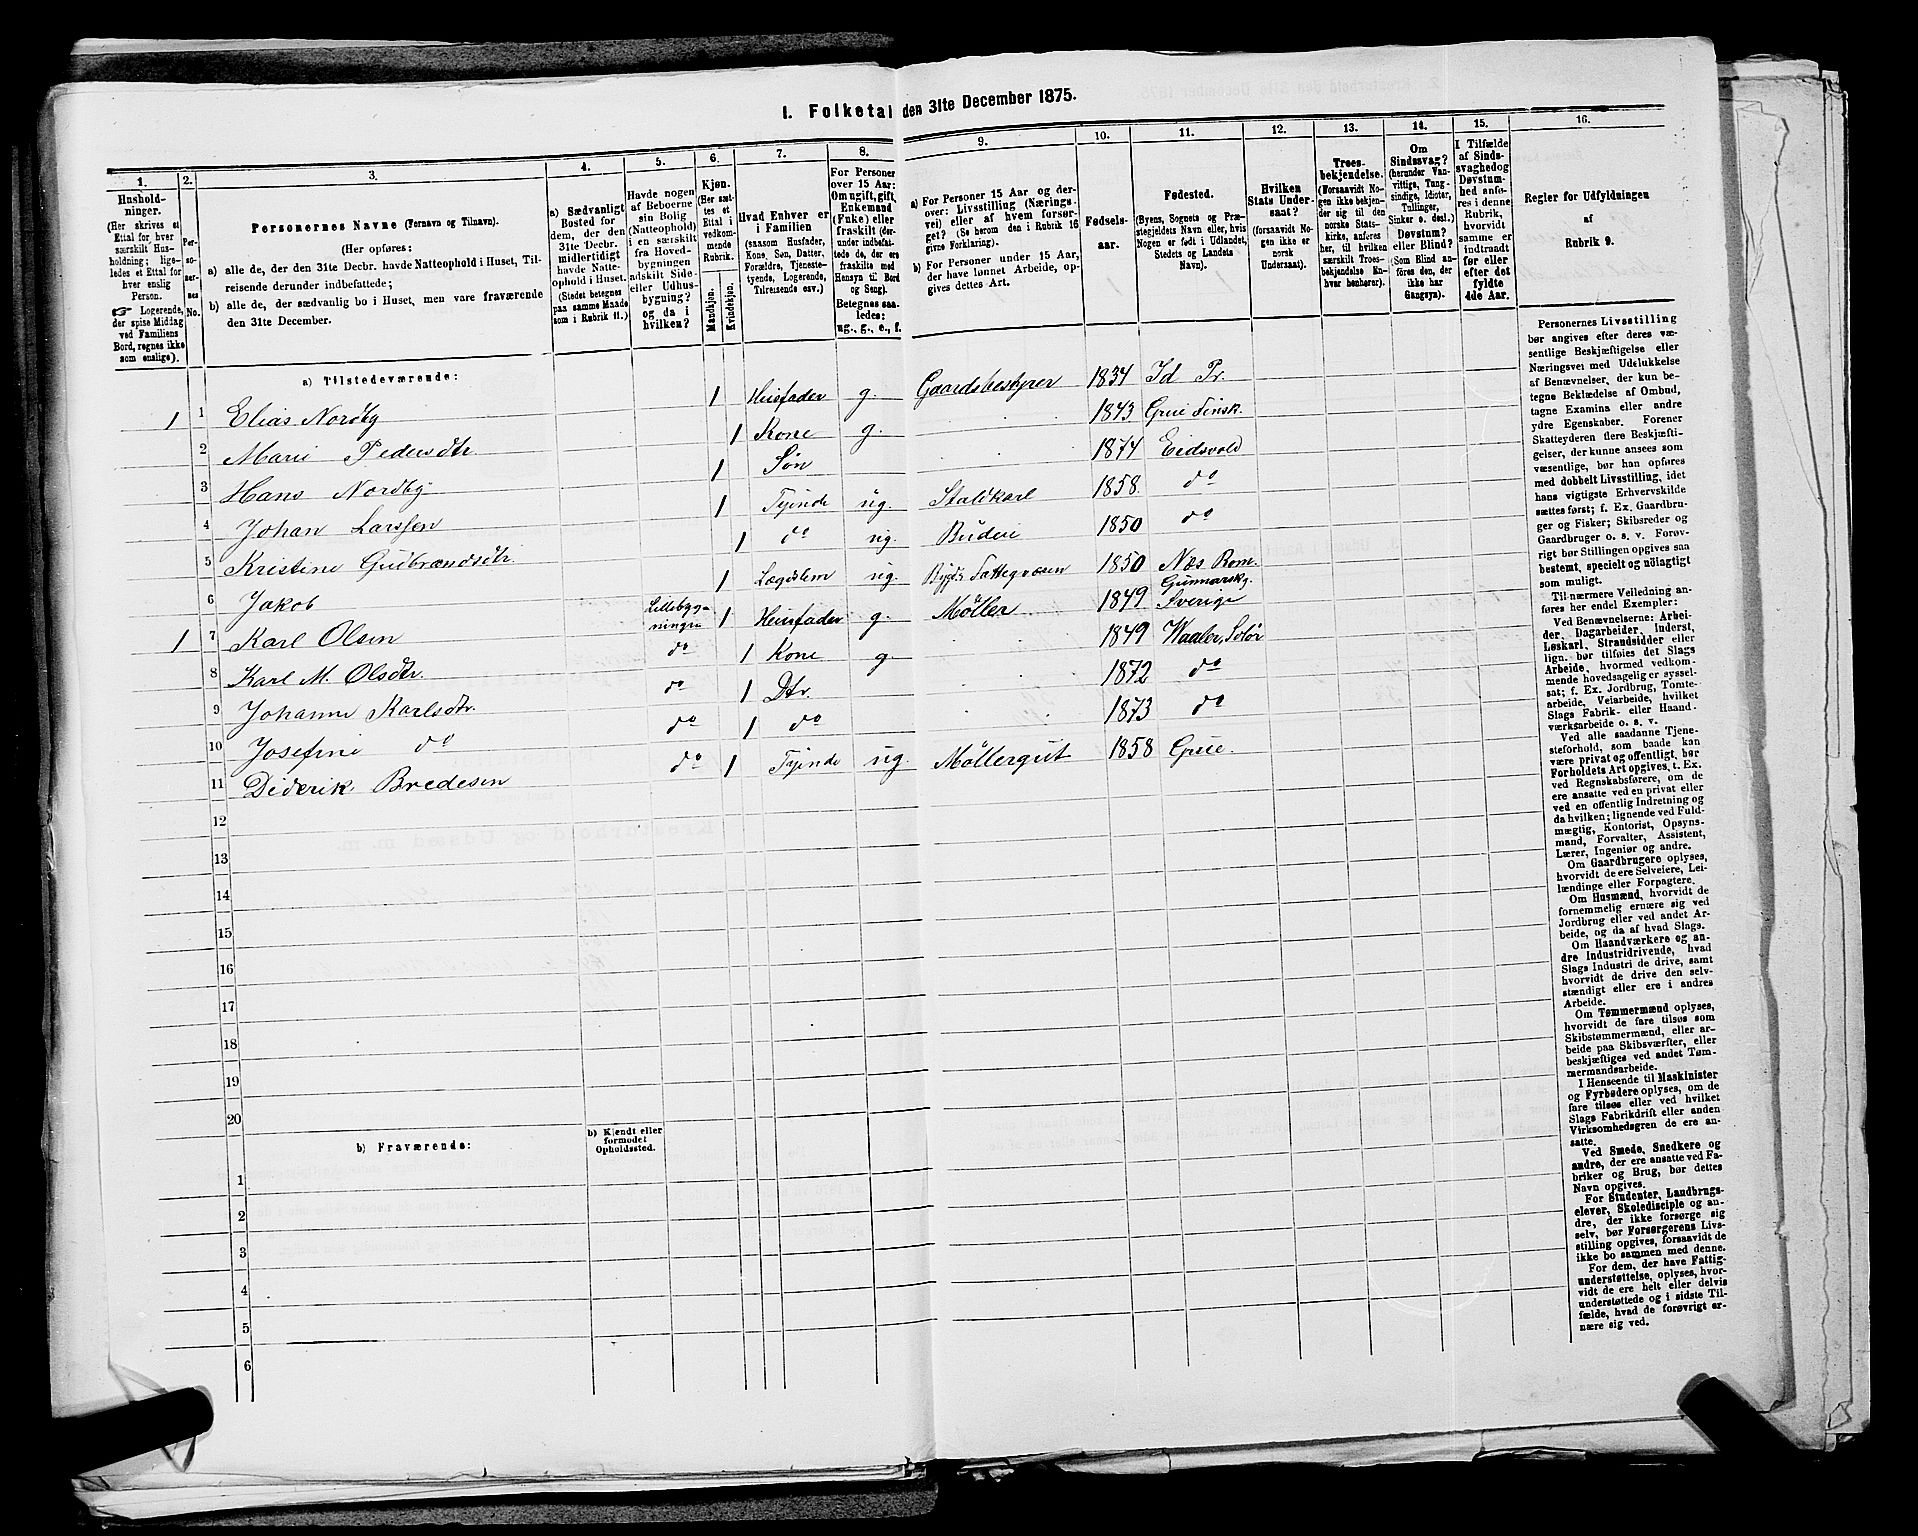 I. Folketal den 31te December 1875.
1. 2. 3. 4. 5. 6. 7. 8. 9. 10. 11. 12. 13. 14. 15. 16.
Hushold-
ninger.
(Her skrives et
Ettal for hver
særskilt Hus-
holdning; lige-
ledes et Ettal for
hver enslig
Person.
☞ Logerende,
der spise Middag
ved Familiens
Bord, regnes ikke
som enslige).
Per-
so-
ner-
nes
No.
Personernes Navne (Fornavn og Tilnavn).
(Her opføres:
a) alle de, der den 31te Decbr. havde Natteophold i Huset, Til-
reisende derunder indbefattede;
b) alle de, der sædvanlig bo i Huset, men vare fraværende
den 31te December.
a) Sædvanligt
Bosted for
dem, der den
31te Decbr.
midlertidigt
havde Natte-
ophold i Huset.
(Stedet betegnes
paa samme Maade
som i Rubrik 11.)
Havde nogen
af Beboerne
sin Bolig
(Natteophold)
i en særskilt
fra Hoved-
bygningen
adskilt Side-
eller Udhus-
bygning?
og da i
hvilken?
Kjøn.
(Her sæt-
tes et
Ettal i
vedkom-
mende
Rubrik.
Mandkjøn.
Kvindekjøn.
Hvad Enhver er
i Familien
(saasom Husfader,
Kone, Søn, Datter,
Forældre, Tjeneste-
tyende, Logerende,
Tilreisende osv.)
For Personer
over 15 Aar:
Om ugift, gift,
Enkemand
(Enke) eller
fraskilt (der-
under indbefat-
tede de, der ere
fraskilte med
Hensyn til Bord
og Seng).
Betegnes saa-
ledes:
ug., g., e., f.
a) For Personer 15 Aar og der-
over: Livsstilling (Nærings-
vei) eller af hvem forsør-
get? (Se herom den i Rubrik 16
givne Forklaring).
b) For Personer under 15 Aar,
der have lønnet Arbeide, op-
gives dettes Art.
Fødsels-
aar.
Fødested.
(Byens, Sognets og Præ-
stegjeldets Navn eller, hvis
Nogen er født i Udlandet,
Stedets og Landets
Navn).
Hvilken
Stats Under-
saat?
(forsaavidt No-
gen ikke er
norsk
Undersaat).
Troes-
bekjendelse.
(Forsaavidt No-
gen ikke bekjen-
der sig til den
norske Stats-
kirke, anføres
her, til hvilken
særskilt Troes-
bekjendelse En-
hver henhører).
Om
Sindssvag?
(herunder Van-
vittige, Tung-
sindige, Idioter,
Tullinger,
Sinker o. desl.)
Døvstum?
eller Blind?
(Som Blind an-
føres den, der
ikke har
Gangsyn).
I Tilfælde
af Sinds-
svaghed og
Døvstum-
hed anfø-
res i denne
Rubrik,
hvorvidt
samme er
indtraadt
før eller
efter det
fyldte
4de Aar.
Regler for Udfyldningen
af
Rubrik 9.
a) Tilstedeværende:
1 1 Elias Nordby 1 Husfader g. Gaardsbestyrer 1834 Id Pr.
2 Marie Pedersdtr. 1 Kone g. 1843 Grue Finsk.
3 Hans Nordby 1 Søn 1874 Eidsvold
4 Johan Larssen 1 Tjende ug. Staldkarl 1858. do
5 Kristine Gulbrandsdtr. 1 do ug. Budeie 1850 do
6 Jakob 1 Lægdslem ug. Bygds Fattegvæsen 1850 Næs Rom.
1 7 Karl Olsen Lillebyg-
ningen 1 Husfader g. Møller 1849 Gunnarskg.
Sverige
8 Karl M. Olsdtr. do 1 Kone g. 1849 Waaler, Solør
9 Johanne Karlsdtr. do 1 Dtr. 1872 do
10 Josefine do do 1 do 1873 do
11 Diderik Bredesen do 1 Tjende ug. Møllergut 1858 Grue.
12
13
14
15
16
17
18
19
20
b) Fraværende:
b) Kjendt eller
formodet
Opholdssted.
1
2
3
4
5
6
Personernes Livsstilling
bør angives efter deres væ-
sentlige Beskjæftigelse eller
Næringsvei med Udelukkelse
af Benævnelser, der kun be-
tegne Beklædelse af Ombud,
tagne Examina eller andre
ydre Egenskaber. Forener
Skatteyderen flere Beskjæfti-
gelser, der kunne ansees som
væsentlige, bør han opføres
med dobbelt Livsstilling, idet
hans vigtigste Erhvervskilde
sættes først; f. Ex. Gaardbru-
ger og Fisker; Skibsreder og
Gaardbruger o. s. v. Forøv-
rigt bør Stillingen opgives saa
bestemt, specielt og udlagtigt
som muligt.
Til nærmere Veiledning an-
føres her endel Exempler:
Ved Benævnelserne: Arbei-
der, Dagarbeider, Inderst,
Løskarl, Strandsidder eller
lign. bør tilføies det Slags
Arbeide, hvormed vedkom-
mende hovedsagelig er syssel-
sat; f. Ex. Jordbrug, Tomte-
arbeide, Veiarbeide, hvilket
Slags Fabrik- eller Haand-
værksarbeide o. s. v.
Ved alle saadanne Tjene-
steforhold, som baade kan
være privat og offentligt, bør
Forholdets Art opgives, t. Ex.
ved Regnskabsførere, om de
ere ansatte ved en privat eller
ved en offentlig Indretning og
da hvilken; lignende ved Fuld-
mægtig, Kontorist, Opsyns-
mand, Forvalter, Assistent,
Lærer, Ingeniør og andre.
Om Gaardbrugere oplyses,
hvorvidt de ere Selveiere, Lei-
lændinge eller Forpagtere.
Om Husmænd, hvorvidt de
fornemmelig ernære sig ved
Jordbrug eller ved andet Ar-
beide, og da af hvad Slags.
Om Haandværkere og an-
dre Industridrivende, hvad
Slags Industri de drive, samt
hvorvidt de drive den selv-
stændigt eller ere i andres
Arbeide.
Om Tømmermænd oplyses,
hvorvidt de fare tilsøs som
Skibstømmermænd, eller ar-
beide paa Skibsværfter, eller
beskjæftiges ved andet Tøm-
mermandsarbeide.
I Henseende til Maskinister
og Fyrbødere oplyses, om de
fare tilsøs eller ved hvilket
Slags Fabrikdrift eller anden
Virksomhedsgren de ere an-
satte.
Ved Smede, Snedkere og
andre, der ere ansatte ved Fa-
briker og Brug, bør dettes
Navn opgives.
For Studenter, Landbrugs-
elever, Skoledisciple og an-
dre, der ikke forsørge sig
selv, bør Forsørgerens Livs-
stilling opgives, forsaavidt de
ikke bo sammen med denne.
For dem, der have Fattig-
understøttelse, oplyses, hvor-
vidt de ere helt eller delvis
understøttede og i sidste Til-
fælde, hvad de forøvrigt er-
nære sig ved.